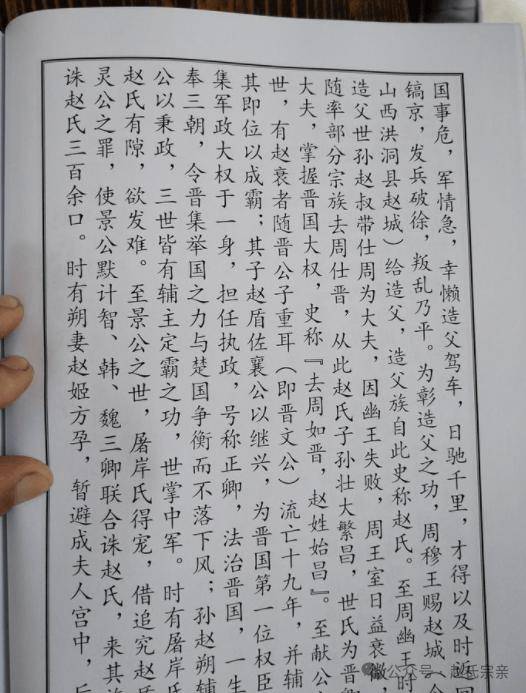 国事危，军情急，幸懒造父驾车，日驰千里，才得以及时返
镐京，发兵破徐，叛乱乃平。为彰造父之功，周穆王赐赵城（
山西洪洞县赵城）给造父，造父族自此史称赵氏。至周幽王时
造父世孙赵叔带仕周为大夫，因幽王失败，周王室日益衰
随率部分宗族去周仕晋，从此赵氏子孙壮大繁昌，世氏为晋
大夫，掌握晋国大权，史称『去周如晋，赵姓始昌』。至献公
世，有赵衰者随晋公子重耳（即晋文公）流亡十九年，并辅
其即位以成霸；其子赵盾佐襄公以继兴，为晋国第一位权臣
集军政大权于一身，担任执政，号称正卿，法治晋国，一生
奉三朝，令晋集举国之力与楚国争衡而不落下风；孙赵朔辅
公以秉政，三世皆有辅主定霸之功，世掌中军。时有屠岸氏
赵氏有隙，欲发难。至景公之世，屠岸氏得宠，借追究赵盾
灵公之罪，使景公默计智、韩、魏三卿联合诛赵氏，来其
诛赵氏三百余口。时有朔妻赵姬方孕，暂避成夫人宫中，
公众号·赵氏宗亲